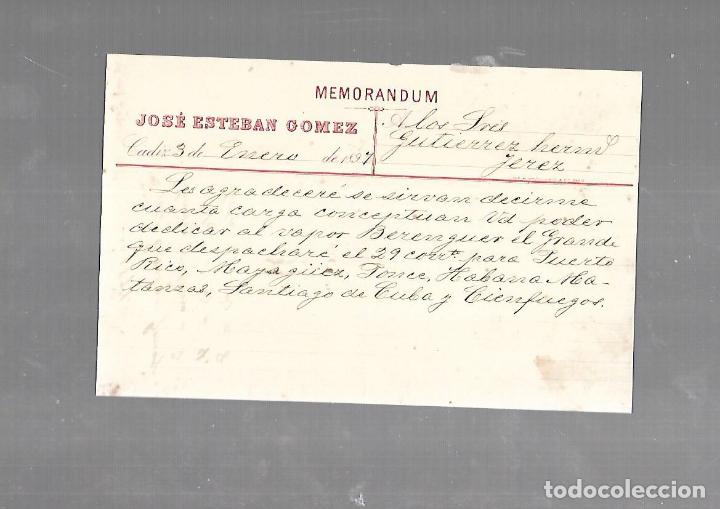 MEMORANDUM
JOSÉ ESTEBAN GOMEZ
Cadiz 3 de Enero de 1897
A los Sres
Gutierrez hermº
Jerez
Les agradeceré se sirvan decirme
cuanta carga conceptuan Vd poder
dedicar al vapor Berenguer el Grande
que despacharé el 29 corrte. para Puerto
Rico, Mayagüez, Ponce, Habana Ma-
tanzas, Santiago de Cuba y Cienfuegos.
todocoleccion.net